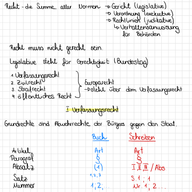 Recht = die Summe aller Normen → Gesetz (Legislative)
→ Verordnung (exekutive)
→ Richterrecht (judikative)
↳ Verhaltensanweisung
für Behörden
Recht muss nicht gerecht sein
Legislative steht für Gerechtigkeit (Bundestag)
1. Verfassungsrecht
2. Zivilrecht
3. Strafrecht
4. öffentliches Recht
Europarecht
→ steht über dem Verfassungsrecht
I. Verfassungsrecht
Grundrechte sind Abwehrrechte der Bürger gegen den Staat.
Buch Schreiben
Artikel Art Art
Paragraf § §
Absatz (1) I II III / Abs
Satz 1 S. 1, 1
Nummer 1, 2, Nr. 1, 2